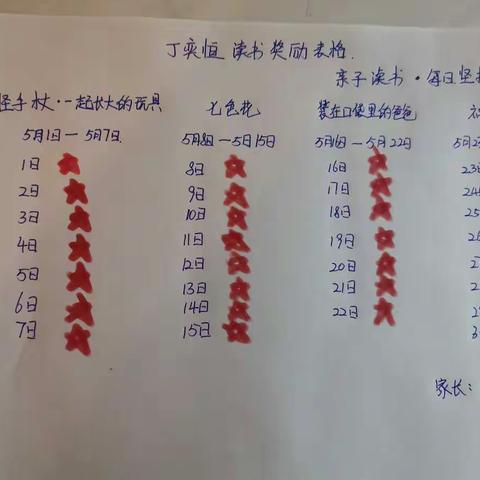 丁奕恒 读书奖励表格.
亲子读书·每日坚持
怪手杖·一起长大的玩具
七色花
装在口袋里的爸爸
5月1日—5月7日
5月8日—5月15日
5月16日—5月22日
5月23
1日 8日 16日 23日
2日 9日 17日 24
3日 10日 18日 25
4日 11日 19日 26
5日 12日 20日 2
6日 13日 21日 2
7日 14日 22日 2
15日 3
家长: